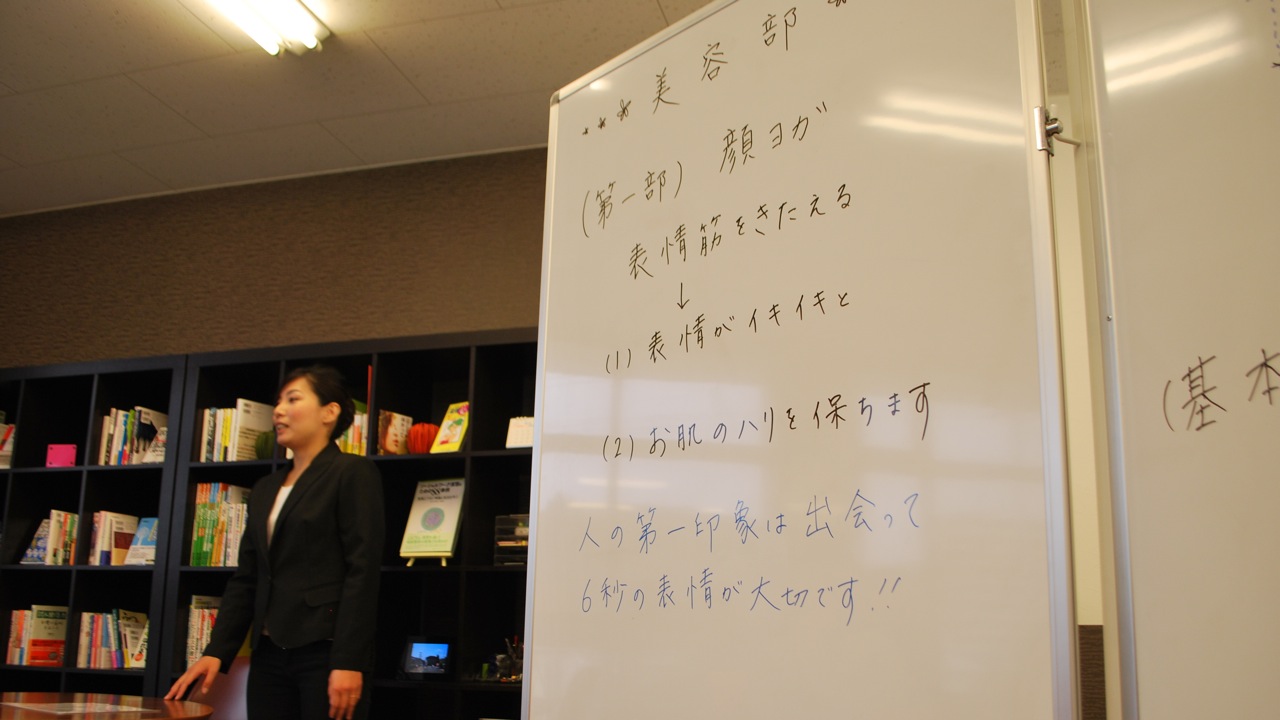 美容部
(第一部) 顔ヨガ
表情筋をきたえる
↓
(1) 表情がイキイキと
(2) お肌のハリを保ちます
人の第一印象は出会って
6秒の表情が大切です!!
(基本